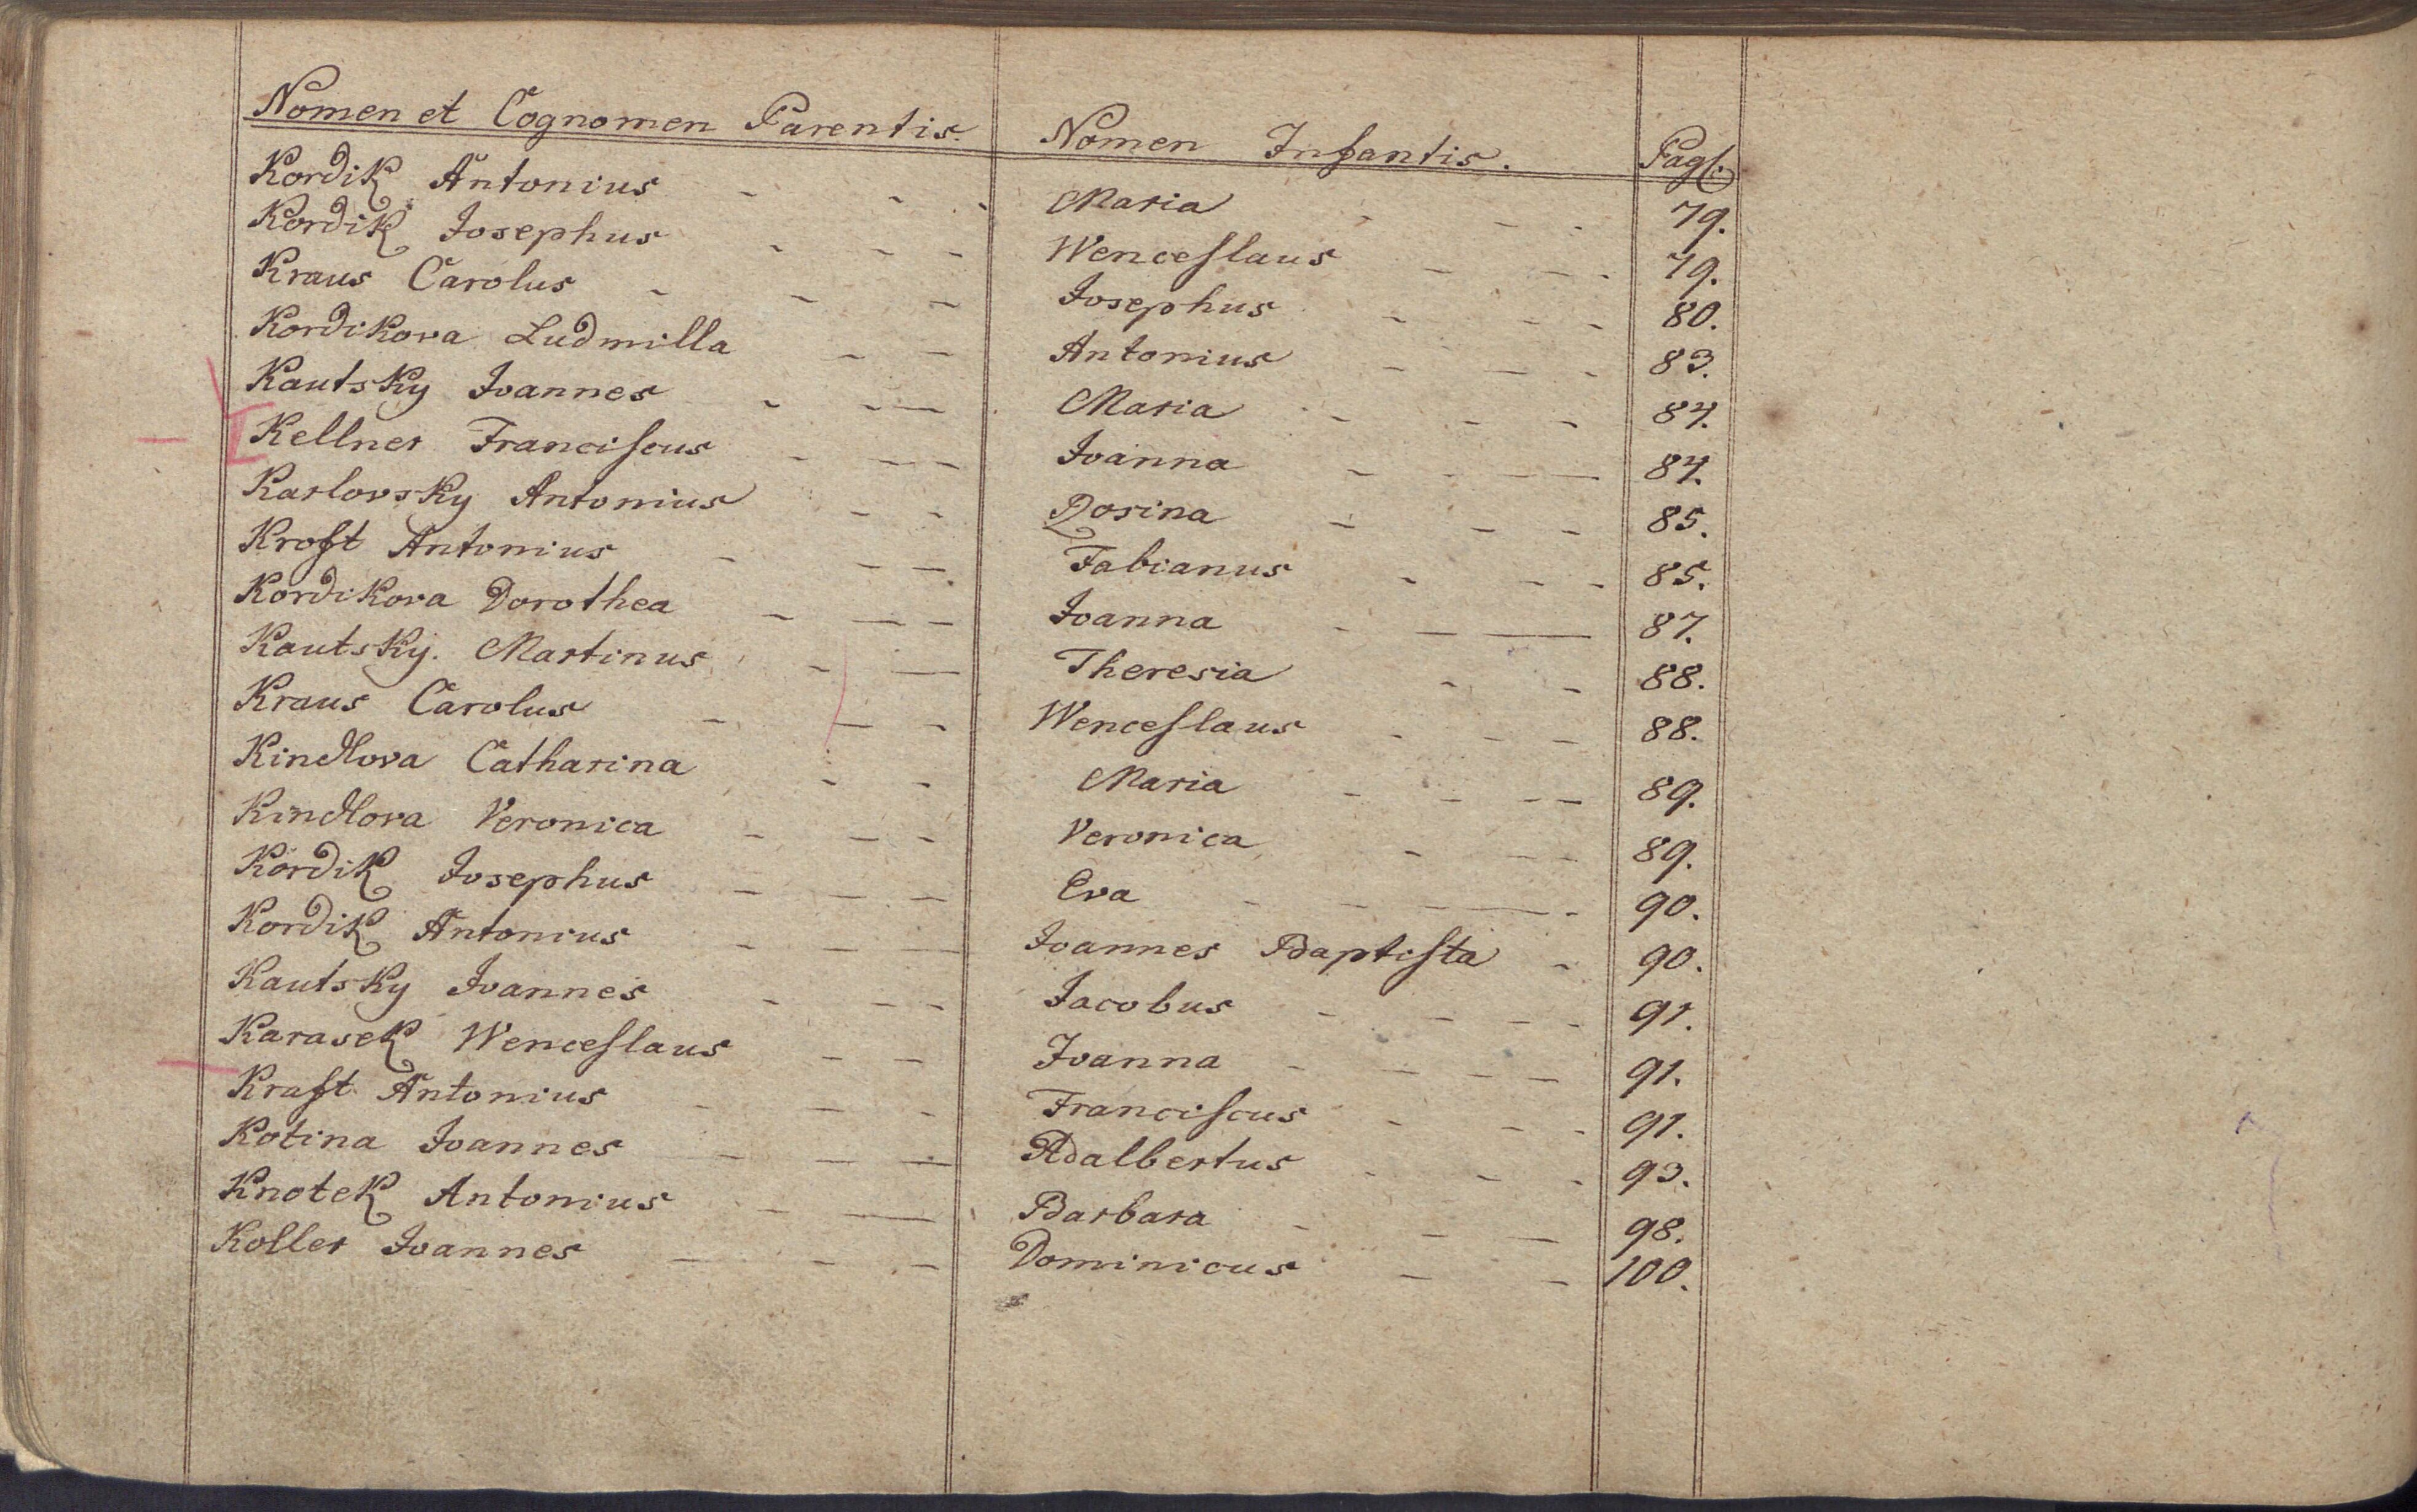 Nomen et Cognomen Parentis. Nomen Infantis. Pag.
Kordik Antonius - - - Maria - - - 79.
Kordik Josephus - - - Wenceslaus - - - 79.
Kraus Carolus - - - Josephus - - - 80.
Kordikova Ludmilla - - Antonius - - - 83.
Kautsky Joannes - - - Maria - - - 84.
Kellner Franciscus - - - Joanna - - - 84.
Karlovsky Antonius - - Rosina - - - 85.
Kroft Antonius - - - Fabianus - - - 85.
Kordikova Dorothea - - - Joanna - - - 87.
Kautsky Martinus - - Theresia - - 88.
Kraus Carolus - - - Wenceslaus - - - 88.
Kindlova Catharina - - Maria - - - - 89.
Kindlova Veronica - - - Veronica - - - 89.
Kordik Josephus - - - Eva - - - - 90.
Kordik Antonius - - - Joannes Baptista - 90.
Kautsky Joannes - - - Jacobus - - - - 91.
Karasek Wenceslaus - - Joanna - - - - 91.
Kraft Antonius - - - Franciscus - - - 91.
Kotina Joannes - - - Adalbertus - - - 93.
Knotek Antonius - - Barbara - - - 98.
Koller Joannes - - - Dominicus - - 100.